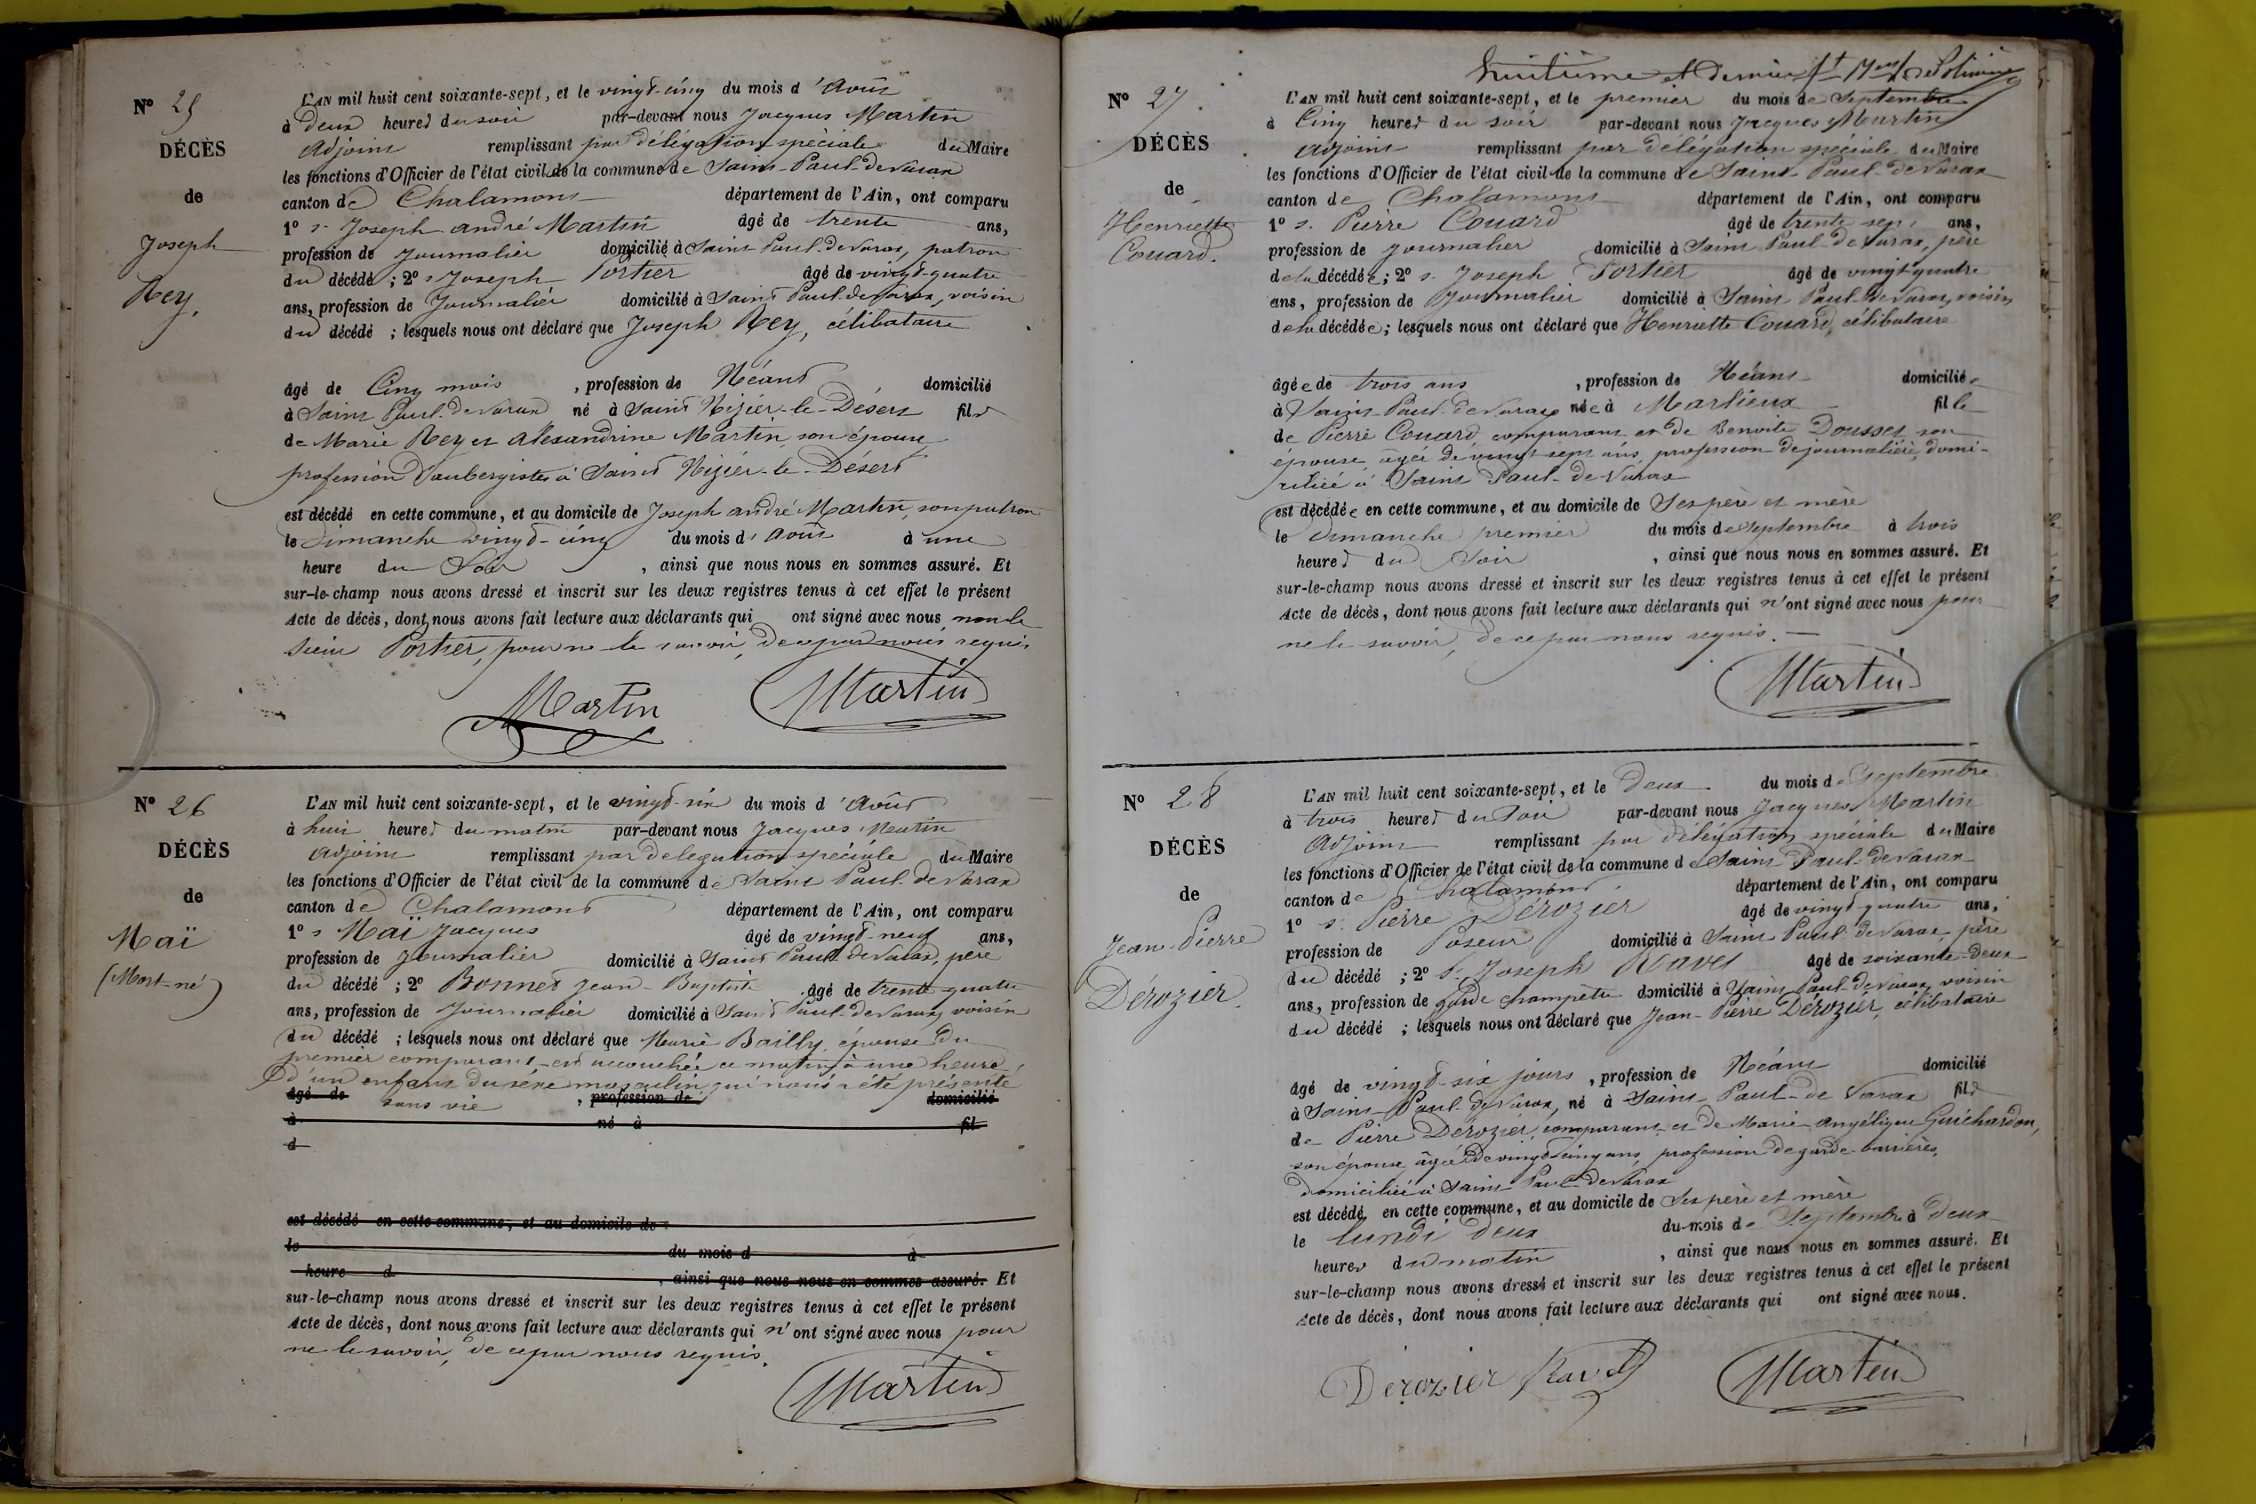 Nº 25
DÉCÈS
de
Joseph
Rey.
L'AN mil huit cent soixante-sept, et le vingt-cinq du mois d'Août
à deux heures du soir par-devant nous Jacques Martin
adjoint remplissant par délégation spéciale du Maire
les fonctions d'Officier de l'état civil de la commune de Saint-Paul-de-Varax
canton de Chalamont département de l'Ain, ont comparu
1º s. Joseph andré Martin âgé de trente ans,
profession de Journalier domicilié à Saint Paul-de-Varax, patron
du décédé ; 2º s. Joseph Portier âgé de vingt-quatre
ans, profession de Journalier domicilié à Saint Paul-de-Varax, voisin
du décédé ; lesquels nous ont déclaré que Joseph Rey, célibataire
âgé de Cinq mois , profession de Néant domicilié
à Saint Paul-de-Varax né à Saint Nizier-le-Désert fils
de Marie Rey et alexandrine Martin son épouse
profession d'aubergistes à Saint Nizier-le-Désert
est décédé en cette commune, et au domicile de Joseph andré Martin, son patron
le Dimanche vingt-cinq du mois d'Août à une
heure du Soir , ainsi que nous nous en sommes assuré. Et
sur-le-champ nous avons dressé et inscrit sur les deux registres tenus à cet effet le présent
Acte de décès, dont nous avons fait lecture aux déclarants qui ont signé avec nous non le
sieur Portier, pour ne le savoir, de ce par nous requis
Martin Martin
Nº 26
DÉCÈS
de
Maï
(Mort-né)
L'AN mil huit cent soixante-sept, et le vingt-six du mois d'Août
à huit heures du matin par-devant nous Jacques Martin
adjoint remplissant par delegation spéciale du Maire
les fonctions d'Officier de l'état civil de la commune de Saint Paul-de-Varax
canton de Chalamont département de l'Ain, ont comparu
1º s. Maï Jacques âgé de vingt-neuf ans,
profession de Journalier domicilié à Saint Paul de Varax, père
du décédé ; 2º Bonnet Jean-Baptiste âgé de trente-quatre
ans, profession de Journalier domicilié à Saint Paul-de-Varax, voisin
du décédé ; lesquels nous ont déclaré que Marie Bailly, épouse du
premier comparant, est accouchée ce matin à une heure
d'un enfant du sexe masculin qui nous a été présenté
âgé de sans vie , profession de domicilié
à né à fil
d
est décédé en cette commune, et au domicile de
le du mois d à
heure d , ainsi que nous nous en sommes assuré. Et
sur-le-champ nous avons dressé et inscrit sur les deux registres tenus à cet effet le présent
Acte de décès, dont nous avons fait lecture aux déclarants qui n'ont signé avec nous pour
ne le savoir, de ce par nous requis.
Martin
huitième et dernier
Nº 27.
DÉCÈS
de
Henriette
Couard.
L'AN mil huit cent soixante-sept, et le premier du mois de Septembre
à Cinq heures du soir par-devant nous Jacques Martin
adjoint remplissant par délégation spéciale du Maire
les fonctions d'Officier de l'état civil de la commune de Saint-Paul-de-Varax
canton de Chalamont département de l'Ain, ont comparu
1º s. Pierre Couard âgé de trente-sept ans,
profession de journalier domicilié à Saint Paul-de-Varax, père
de la décédée ; 2º s. Joseph Portier âgé de vingt-quatre
ans, profession de Journalier domicilié à Saint Paul-de-Varax, voisin
de la décédée ; lesquels nous ont déclaré que Henriette Couard, célibataire
âgée de trois ans , profession de Néant domiciliée
à Saint-Paul-de-Varax née à Marlieux fille
de Pierre Couard, comparant et de Benoite Dousset, son
épouse, âgée de vingt-sept ans, profession de journalière, domi-
ciliée à Saint Paul-de-Varax
est décédée en cette commune, et au domicile de Ses père et mère
le Dimanche premier du mois de Septembre à trois
heures du Soir , ainsi que nous nous en sommes assuré. Et
sur-le-champ nous avons dressé et inscrit sur les deux registres tenus à cet effet le présent
Acte de décès, dont nous avons fait lecture aux déclarants qui n'ont signé avec nous pour
ne le savoir, de ce par nous requis.
Martin
Nº 28
DÉCÈS
de
Jean-Pierre
Dérozier.
L'AN mil huit cent soixante-sept, et le Deux du mois de Septembre
à trois heures du Soir par-devant nous Jacques Martin
Adjoint remplissant par délégation spéciale du Maire
les fonctions d'Officier de l'état civil de la commune de Saint Paul-de-Varax
canton de Chalamont département de l'Ain, ont comparu
1º s. Pierre Dérozier âgé de vingt-quatre ans,
profession de Poseur domicilié à Saint Paul-de-Varax, père
du décédé ; 2º s. Joseph Ravet âgé de soixante-deux
ans, profession de garde champêtre domicilié à Saint Paul-de-Varax, voisin
du décédé ; lesquels nous ont déclaré que Jean-Pierre Dérozier, célibataire
âgé de vingt-six jours , profession de Néant domicilié
à Saint-Paul-de-Varax, né à Saint-Paul-de Varax fils
de Pierre Dérozier, comparant et de Marie-Angélique Guichardon,
son épouse, âgée de vingt-cinq ans, profession de garde-barrières,
domiciliée à Saint Paul-de-Varax
est décédé en cette commune, et au domicile de Ses père et mère
le lundi deux du mois de Septembre à deux
heures du matin , ainsi que nous nous en sommes assuré. Et
sur-le-champ nous avons dressé et inscrit sur les deux registres tenus à cet effet le présent
Acte de décès, dont nous avons fait lecture aux déclarants qui ont signé avec nous.
Dérozier Ravet Martin